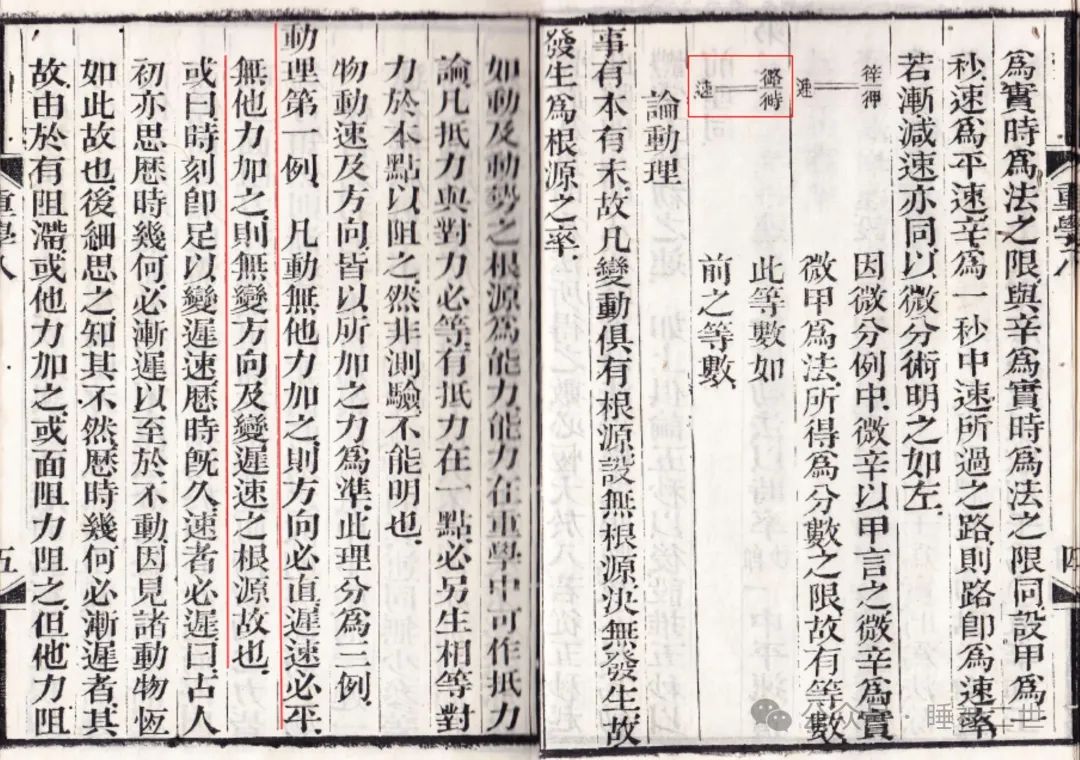 為實時為法之限與辛為實時為法之限同設甲為一
秒速為平速辛為一秒中速所過之路則路卽為速率
若漸減速亦同以微分術明之如左
因微分例中微辛以甲言之微辛為實
微甲為法所得為分數之限故有等數
速
此等數如
前之等數
論動理
事有本有末故凡變動俱有根源設無根源決無發生故
發生為根源之率
重學八
四
如動及動勢之根源為能力能力在重學中可作抵力
論凡抵力與對力必等有抵力在一點必另生相等對
力於本點以阻之然非測驗不能明也
物動速及方向皆以所加之力為準此理分為三例
動理第一例 凡動無他力加之則方向必直遲速必平
無他力加之則無變方向及變遲速之根源故也
或曰時刻卽足以變遲速歷時旣久速者必遲曰古人
初亦思歷時幾何必漸遲以至於不動因見諸動物恆
如此故也後細思之知其不然歷時幾何必漸遲者其
故由於有阻滯或他力加之或面阻力阻之但他力阻
重學八
五